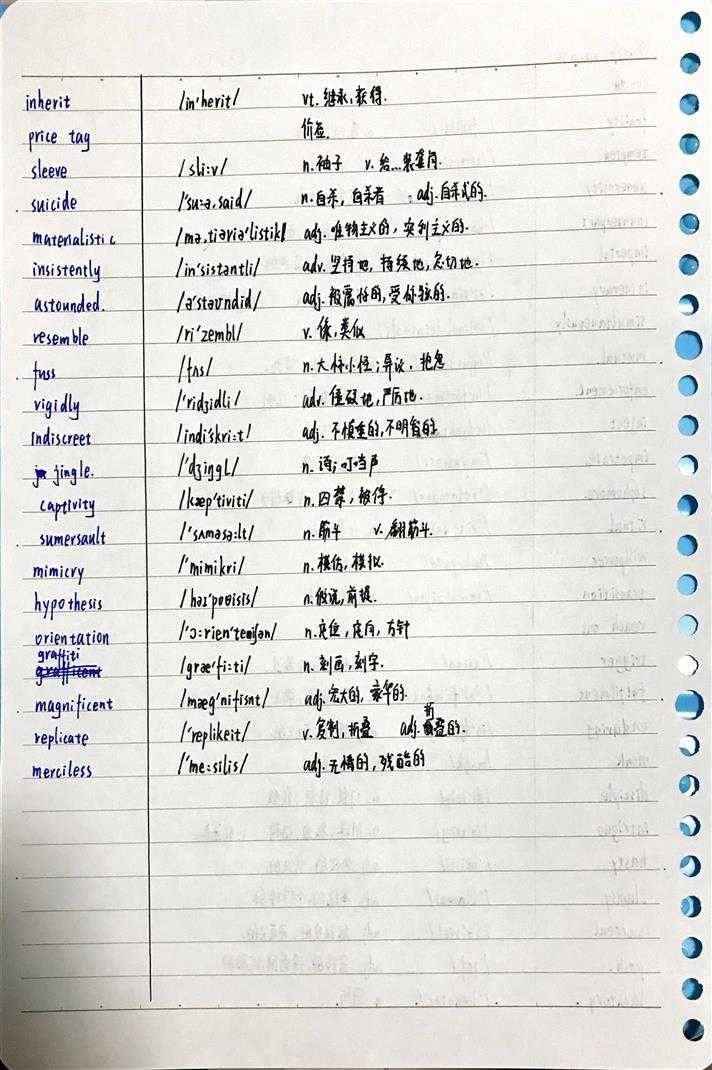 inherit /in'herit/ vt. 继承,获得.
price tag 价签.
sleeve /sli:v/ n. 袖子 v. 给...装套筒.
suicide /'su:ə,said/ n. 自杀, 自杀者 adj. 自杀式的.
materialistic /mə,tiəriə'listik/ adj. 唯物主义的, 实利主义的.
insistently /in'sistəntli/ adv. 坚持地, 持续地, 急切地.
astounded. /ə'staʊndid/ adj. 被震惊的,受惊骇的.
resemble /ri'zembl/ v. 像,类似
fuss /fʌs/ n. 大惊小怪;异议, 抱怨
vigidly /'ridʒidli/ adv. 僵硬地,严厉地.
Indiscreet /indi'skri:t/ adj. 不慎重的,不明智的
jingle. /'dʒingl/ n. 诗; 叮当声
captivity /kæp'tiviti/ n. 囚禁, 被俘.
sumersault /'sʌməsə:lt/ n. 筋斗 v. 翻筋斗.
mimicry /'mimikri/ n. 模仿, 模拟.
hypothesis /haɪ'pɒθisis/ n. 假说, 前提.
orientation /'ɔ:rien'teiʃən/ n. 定位, 定向, 方针
graffiti /græ'fi:ti/ n. 刻画, 刻字.
magnificent /mæg'nifisnt/ adj. 宏大的, 豪华的.
replicate /'replikeit/ v. 复制, 折叠 adj. 折叠的.
merciless /'mə:silis/ adj. 无情的, 残酷的